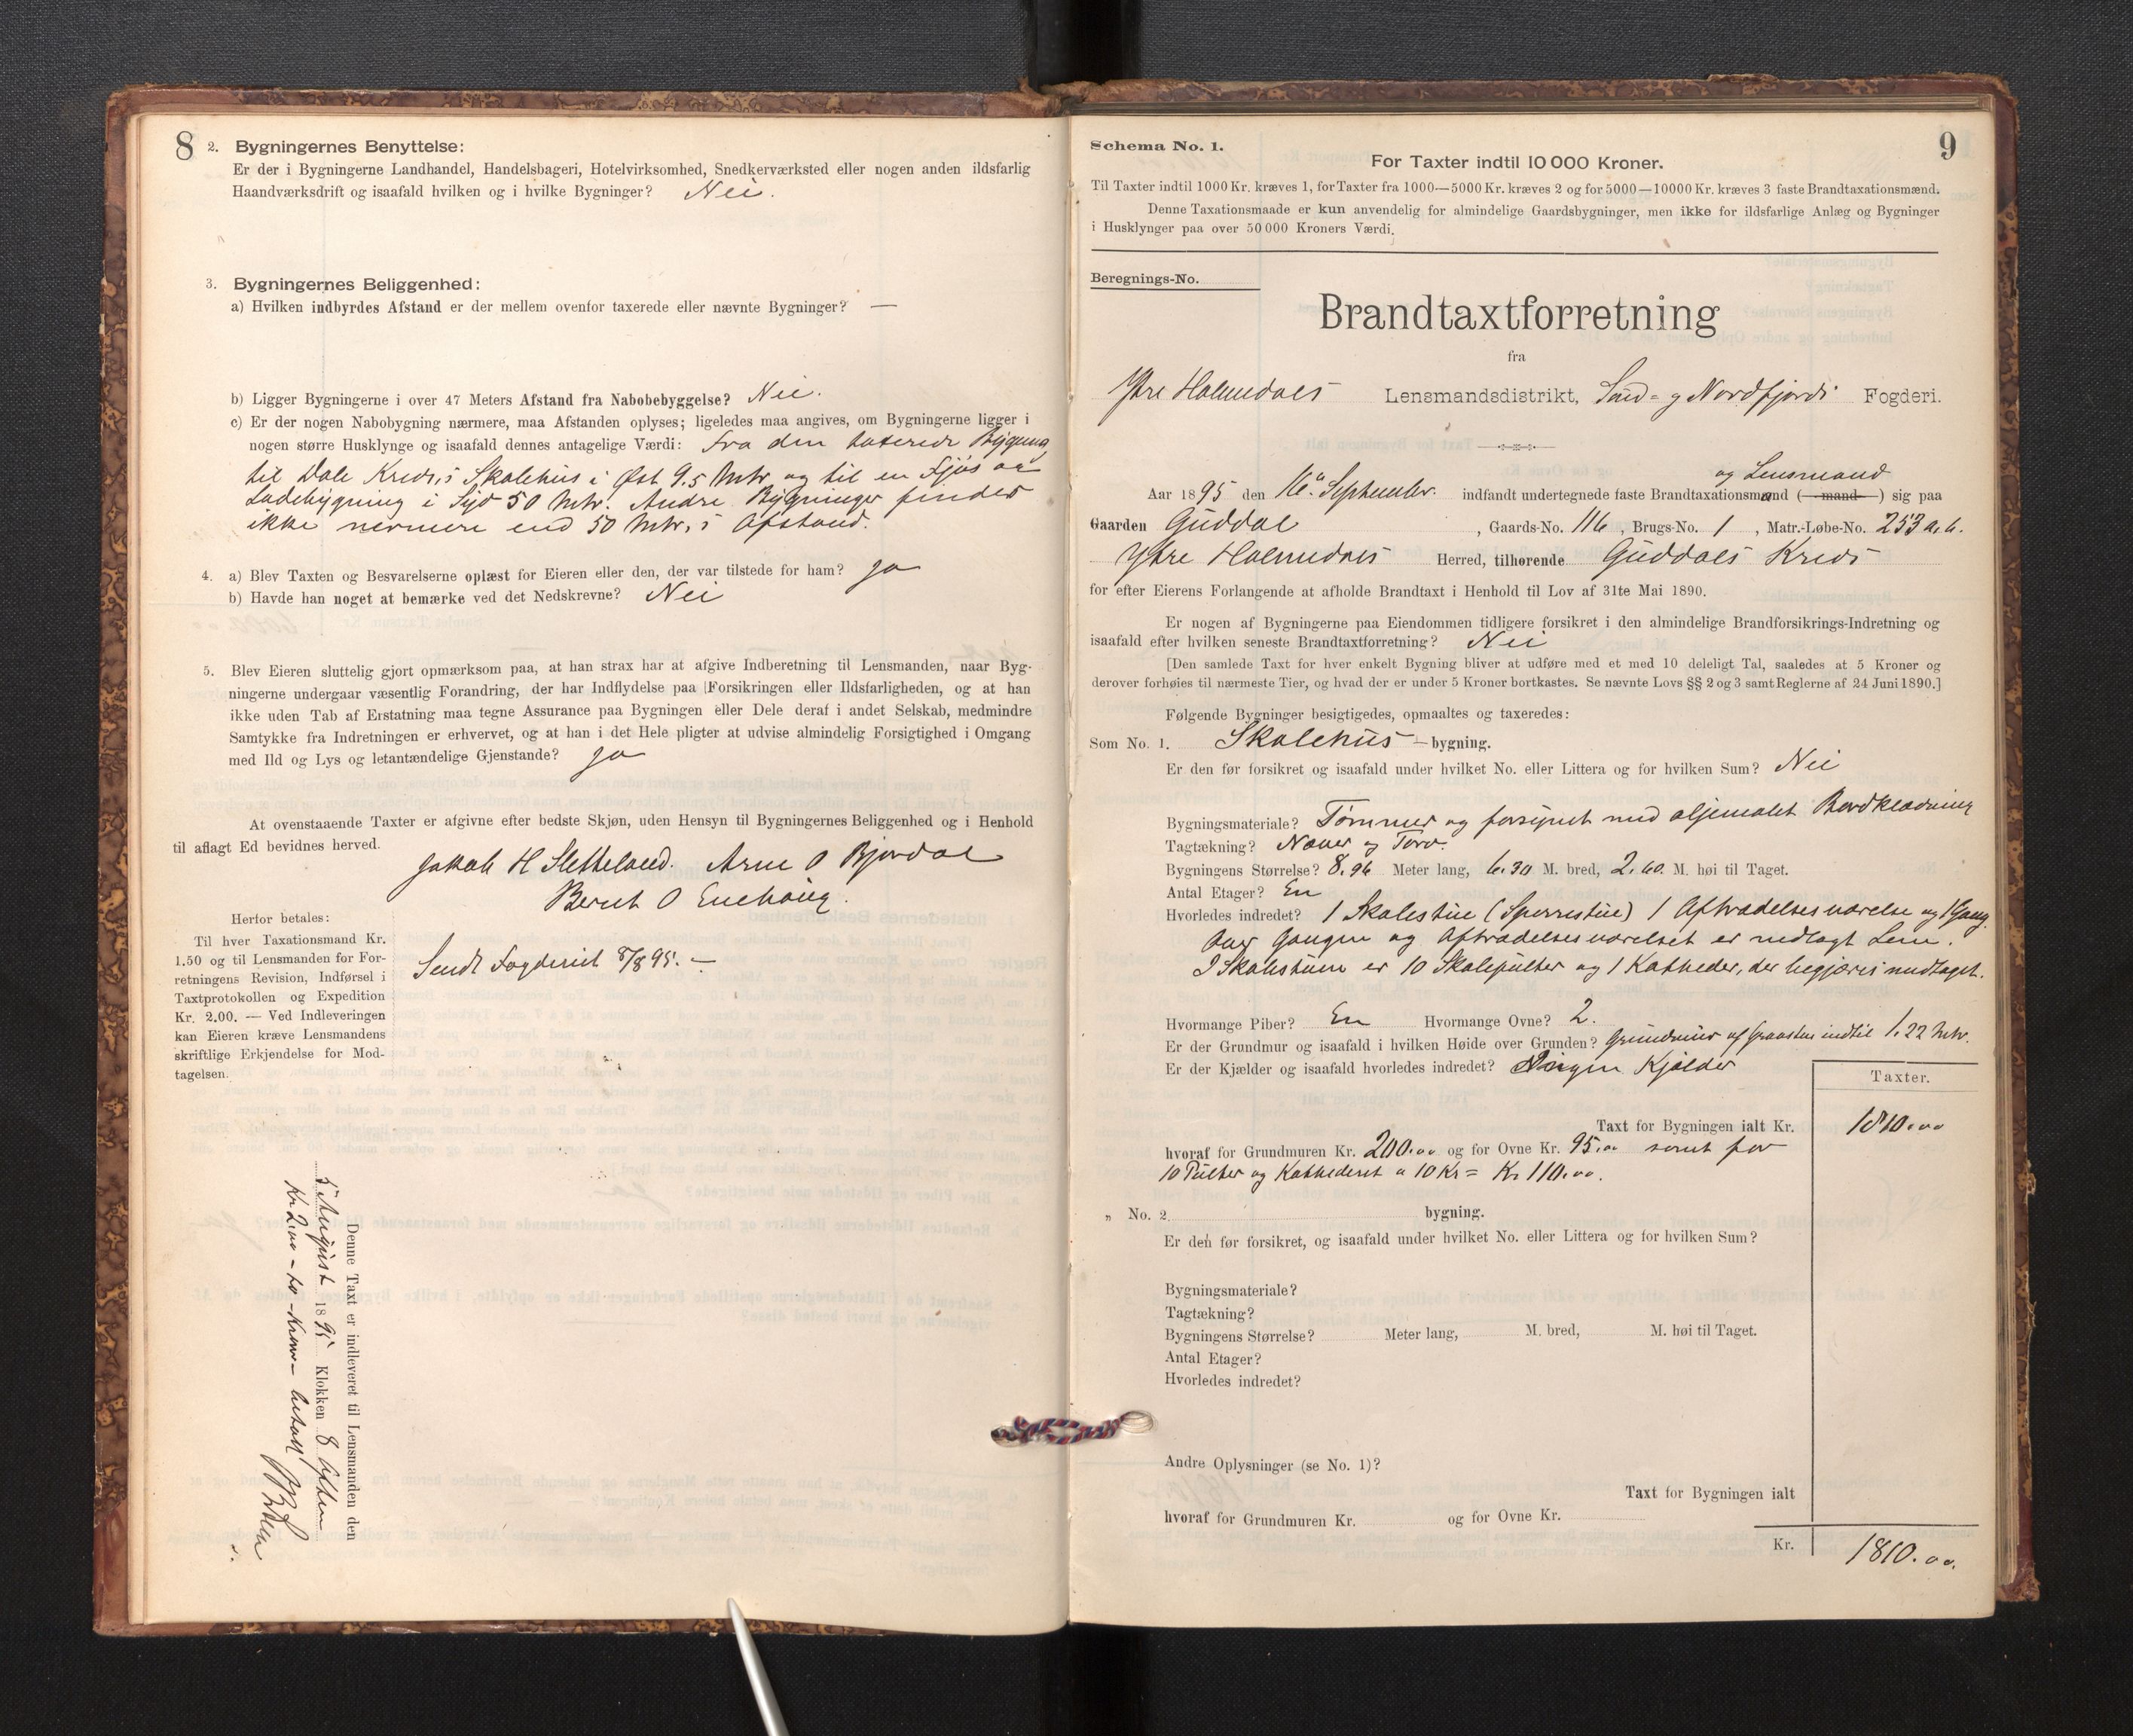 8
2. Bygningernes Benyttelse:
Er der i Bygningerne Landhandel, Handelsbageri, Hotelvirksomhed, Snedkerværksted eller nogen anden ildsfarlig
Haandværksdrift og isaafald hvilken og i hvilke Bygninger? Nei.
3. Bygningernes Beliggenhed:
a) Hvilken indbyrdes Afstand er der mellem ovenfor taxerede eller nævnte Bygninger? —
b) Ligger Bygningerne i over 47 Meters Afstand fra Nabobebyggelse? Nei.
c) Er der nogen Nabobygning nærmere, maa Afstanden oplyses; ligeledes maa angives, om Bygningerne ligger i
nogen større Husklynge og isaafald dennes antagelige Værdi: Fra den taxerede Bygning
til Dale Kreds's Skolehus i Øst 9.5 Mtr og til en Fjøs og
Ladebygning i Syd 50 Mtr. Andre Bygninger findes
ikke nærmere end 50 Mtr. i Afstand.
4. a) Blev Taxten og Besvarelserne oplæst for Eieren eller den, der var tilstede for ham? Ja
b) Havde han noget at bemærke ved det Nedskrevne? Nei
5. Blev Eieren sluttelig gjort opmærksom paa, at han strax har at afgive Indberetning til Lensmanden, naar Byg-
ningerne undergaar væsentlig Forandring, der har Indflydelse paa Forsikringen eller Ildsfarligheden, og at han
ikke uden Tab af Erstatning maa tegne Assurance paa Bygningen eller Dele deraf i andet Selskab, medmindre
Samtykke fra Indretningen er erhvervet, og at han i det Hele pligter at udvise almindelig Forsigtighed i Omgang
med Ild og Lys og letantændelige Gjenstande? Ja
At ovenstaaende Taxter er afgivne efter bedste Skjøn, uden Hensyn til Bygningernes Beliggenhed og i Henhold
til aflagt Ed bevidnes herved.
Jakob H Sletteland. Arne O Bjordal
Bernt O
Herfor betales:
Til hver Taxationsmand Kr.
1.50 og til Lensmanden for For-
retningens Revision, Indførsel i
Taxtprotokollen og Expedition
Kr. 2.00. — Ved Indleveringen
kan Eieren kræve Lensmandens
skriftlige Erkjendelse for Mod-
tagelsen.
Sendt Fogderiet 8/8 95. —
Denne Taxt er indleveret til Lensmanden den
5 August 1895 Klokken 8 Aften
Kr 2.00 - to - Kroner - betalt
9
Schema No. 1.
For Taxter indtil 10 000 Kroner.
Til Taxter indtil 1000 Kr. kræves 1, for Taxter fra 1000—5000 Kr. kræves 2 og for 5000—10000 Kr. kræves 3 faste Brandtaxationsmænd.
Denne Taxationsmaade er kun anvendelig for almindelige Gaardsbygninger, men ikke for ildsfarlige Anlæg og Bygninger
i Husklynger paa over 50 000 Kroners Værdi.
Beregnings-No.
Brandtaxtforretning
fra
Ytre Holmedals Lensmandsdistrikt, Sønd- og Nordfjords Fogderi.
og Lensmand
Aar 1895 den 16de September indfandt undertegnede faste Brandtaxationsmand (mand) sig paa
Gaarden Guddal, Gaards-No. 116, Brugs-No. 1, Matr.-Løbe-No. 253 a.b.
Ytre Holmedals Herred, tilhørende Guddals Kreds
for efter Eierens Forlangende at afholde Brandtaxt i Henhold til Lov af 31te Mai 1890.
Er nogen af Bygningerne paa Eiendommen tidligere forsikret i den almindelige Brandforsikrings-Indretning og
isaafald efter hvilken seneste Brandtaxtforretning? Nei
[Den samlede Taxt for hver enkelt Bygning bliver at udføre med et med 10 deleligt Tal, saaledes at 5 Kroner og
derover forhøies til nærmeste Tier, og hvad der er under 5 Kroner bortkastes. Se nævnte Lovs §§ 2 og 3 samt Reglerne af 24 Juni 1890.]
Følgende Bygninger besigtigedes, opmaaltes og taxeredes:
Som No. 1. Skolehus—bygning.
Er den før forsikret og isaafald under hvilket No. eller Littera og for hvilken Sum? Nei
Bygningsmateriale? Tømmer og forsynet med oljemalet Bordklædning
Tagtækning? Næver og Torv.
Bygningens Størrelse? 8.96 Meter lang, 6.30 M. bred, 2.60 M. høi til Taget.
Antal Etager? En
Hvorledes indredet? 1 Skolestue (Sperrestue) 1 Aftrædelsesværelse og 1 Gang.
Over Gangen og Aftrædelsesværelset er nedlagt Lem.
I Skolestuen er 10 Skolepulter og 1 Katheder, der begjæres medtaget.
Hvormange Piber? En Hvormange Ovne? 2.
Er der Grundmur og isaafald i hvilken Høide over Grunden? Grundmur af Graasten indtil 1.22 Mtr.
Er der Kjælder og isaafald hvorledes indredet? Ningen Kjælder
Taxter.
Taxt for Bygningen ialt Kr. 1810.00
hvoraf for Grundmuren Kr. 200.00 og for Ovne Kr. 95.00 samt for
10 Pulter og Kathederet a 10 Kr = Kr 110.00.
„ No. 2. bygning.
Er den før forsikret, og isaafald under hvilket No. eller Littera og for hvilken Sum?
Bygningsmateriale?
Tagtækning?
Bygningens Størrelse? Meter lang, M. bred, M. høi til Taget.
Antal Etager?
Hvorledes indredet?
Andre Oplysninger (se No. 1)?
Taxt for Bygningen ialt
hvoraf for Grundmuren Kr. og for Ovne Kr.
Kr. 1810.00.